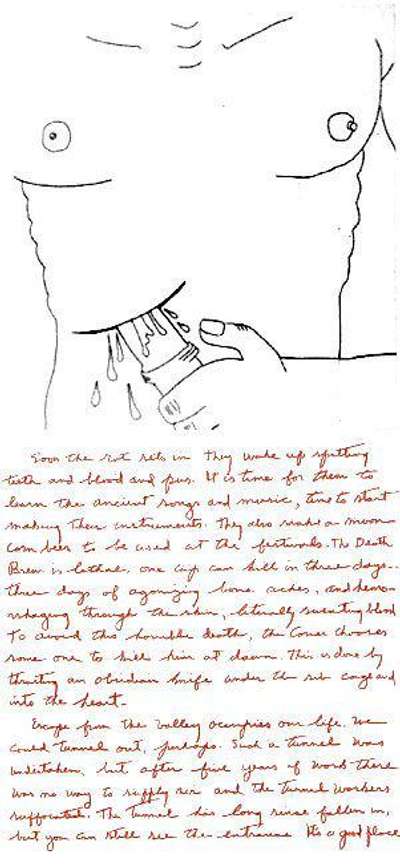 Soon the rot sets in they wake up spitting
teeth and blood and pus. It is time for them to
learn the ancient songs and music, time to start
making their instruments. They also make a moon
corn beer to be used at the festivals. The Death
Brew is lethal, one cup can kill in three days..
three days of agonizing bone aches, and hemor
rhaging through the skin, literally sweating blood
To avoid this horrible death, the Comer chooses
some one to kill him at dawn. This is done by
thrusting an obsidian knife under the rib cage and
into the heart.
Escape from the valley occupies our life. We
could tunnel out, perhaps. Such a tunnel was
undertaken, but after five years of work there
was no way to supply air and the tunnel workers
suffocated. The tunnel has long since fallen in,
but you can still see the entrance. It's a good place